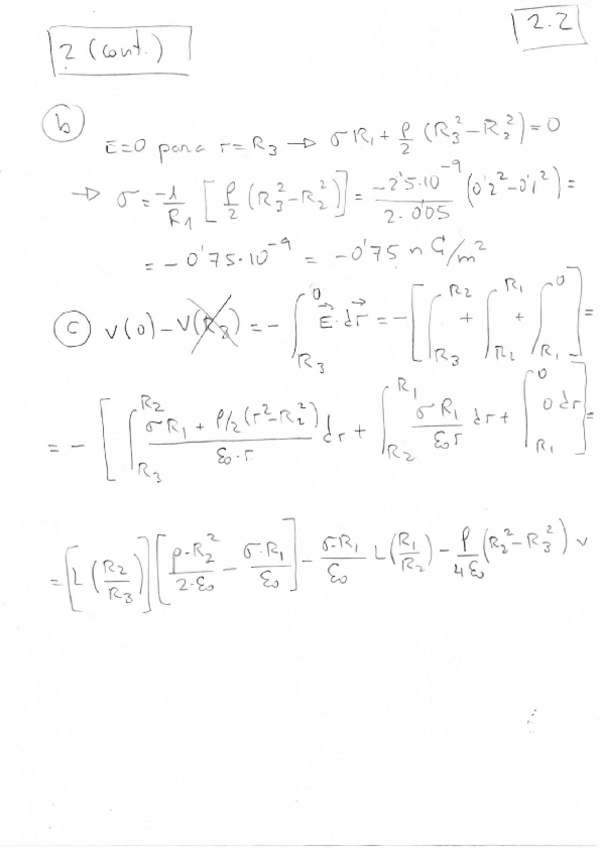 2.2
2 (cont.)
(b) E=0 para r=R₃ → σR₁ + ρ/2 (R₃² − R₂²) = 0
→ σ = −1/R₁ [ρ/2 (R₃² − R₂²)] = −2'5·10⁻⁹/2·0'05 (0'2² − 0'1²) =
= −0'75·10⁻⁹ = −0'75 nC/m²
(c) V(0) − V(R₃) = −∫_{R₃}^{0} E⃗·dr⃗ = −[∫_{R₃}^{R₂} + ∫_{R₂}^{R₁} + ∫_{R₁}^{0}] =
= −[∫_{R₃}^{R₂} (σR₁ + ρ/2 (r² − R₂²))/(ε₀·r) dr + ∫_{R₂}^{R₁} σR₁/(ε₀r) dr + ∫_{R₁}^{0} 0 dr] =
= [L(R₂/R₃)][ρ·R₂²/(2·ε₀) − σ·R₁/ε₀] − σ·R₁/ε₀ L(R₁/R₂) − ρ/(4ε₀) (R₂² − R₃²) V